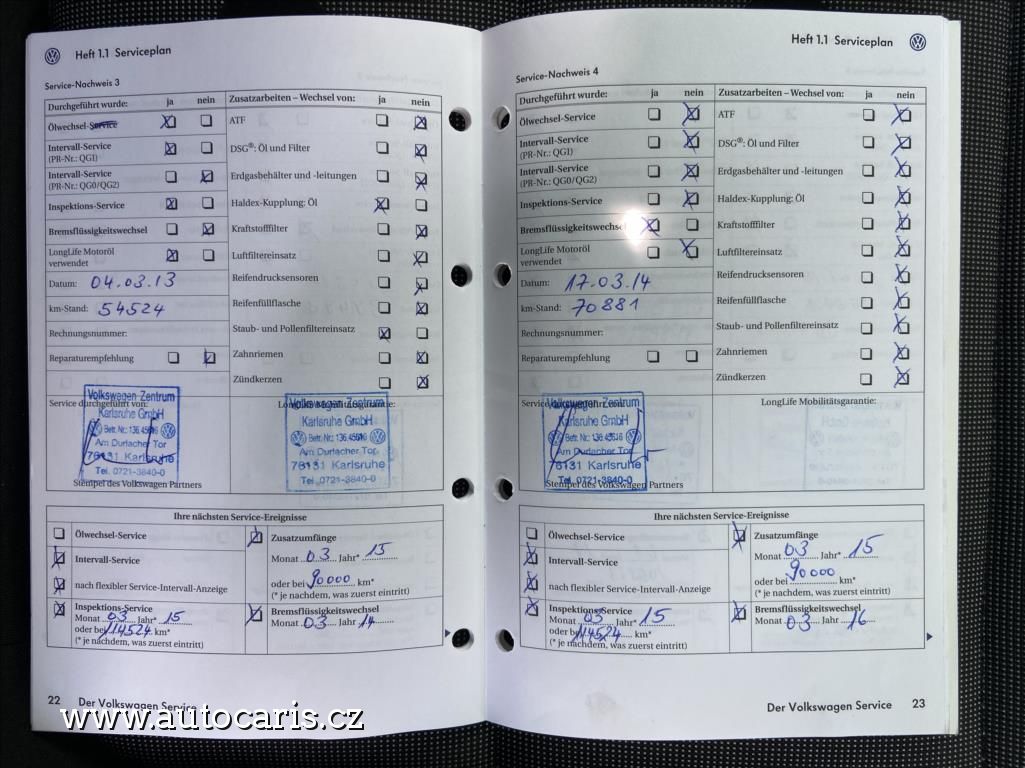 Heft 1.1 Serviceplan
Service-Nachweis 3
Durchgeführt wurde: ja nein
Ölwechsel-Service
Intervall-Service
(PR-Nr.: QG1)
Intervall-Service
(PR-Nr.: QG0/QG2)
Inspektions-Service
Bremsflüssigkeitswechsel
LongLife Motoröl
verwendet
Datum: 04.03.13
km-Stand: 54524
Rechnungsnummer:
Reparaturempfehlung
Zusatzarbeiten – Wechsel von: ja nein
ATF
DSG®: Öl und Filter
Erdgasbehälter und -leitungen
Haldex-Kupplung: Öl
Kraftstofffilter
Luftfiltereinsatz
Reifendrucksensoren
Reifenfüllflasche
Staub- und Pollenfiltereinsatz
Zahnriemen
Zündkerzen
Service durchgeführt von:
Volkswagen Zentrum
Karlsruhe GmbH
Betr. Nr.: 136.45616
Am Durlacher Tor
76131 Karlsruhe
Tel. 0721-3840-0
Stempel des Volkswagen Partners
LongLife Mobilitätsgarantie:
Volkswagen Zentrum
Karlsruhe GmbH
Betr. Nr.: 136.45616
Am Durlacher Tor
76131 Karlsruhe
Tel. 0721-3840-0
Ihre nächsten Service-Ereignisse
Ölwechsel-Service
Intervall-Service
nach flexibler Service-Intervall-Anzeige
Inspektions-Service
Monat 03 Jahr* 15
oder bei 114524 km*
(* je nachdem, was zuerst eintritt)
Zusatzumfänge
Monat 03 Jahr* 15
oder bei 90000 km*
(* je nachdem, was zuerst eintritt)
Bremsflüssigkeitswechsel
Monat 03 Jahr 14
22 Der Volkswagen Service
Heft 1.1 Serviceplan
Service-Nachweis 4
Durchgeführt wurde: ja nein
Ölwechsel-Service
Intervall-Service
(PR-Nr.: QG1)
Intervall-Service
(PR-Nr.: QG0/QG2)
Inspektions-Service
Bremsflüssigkeitswechsel
LongLife Motoröl
verwendet
Datum: 17.03.14
km-Stand: 70881
Rechnungsnummer:
Reparaturempfehlung
Zusatzarbeiten – Wechsel von: ja nein
ATF
DSG®: Öl und Filter
Erdgasbehälter und -leitungen
Haldex-Kupplung: Öl
Kraftstofffilter
Luftfiltereinsatz
Reifendrucksensoren
Reifenfüllflasche
Staub- und Pollenfiltereinsatz
Zahnriemen
Zündkerzen
Volkswagen Zentrum
Karlsruhe GmbH
Betr. Nr.: 136.45616
Am Durlacher Tor
76131 Karlsruhe
Tel. 0721-3840-0
Stempel des Volkswagen Partners
LongLife Mobilitätsgarantie:
Ihre nächsten Service-Ereignisse
Ölwechsel-Service
Intervall-Service
nach flexibler Service-Intervall-Anzeige
Inspektions-Service
Monat 03 Jahr* 15
oder bei 114524 km*
(* je nachdem, was zuerst eintritt)
Zusatzumfänge
Monat 03 Jahr* 15
oder bei 90000 km*
(* je nachdem, was zuerst eintritt)
Bremsflüssigkeitswechsel
Monat 03 Jahr 16
Der Volkswagen Service 23
www.autocaris.cz